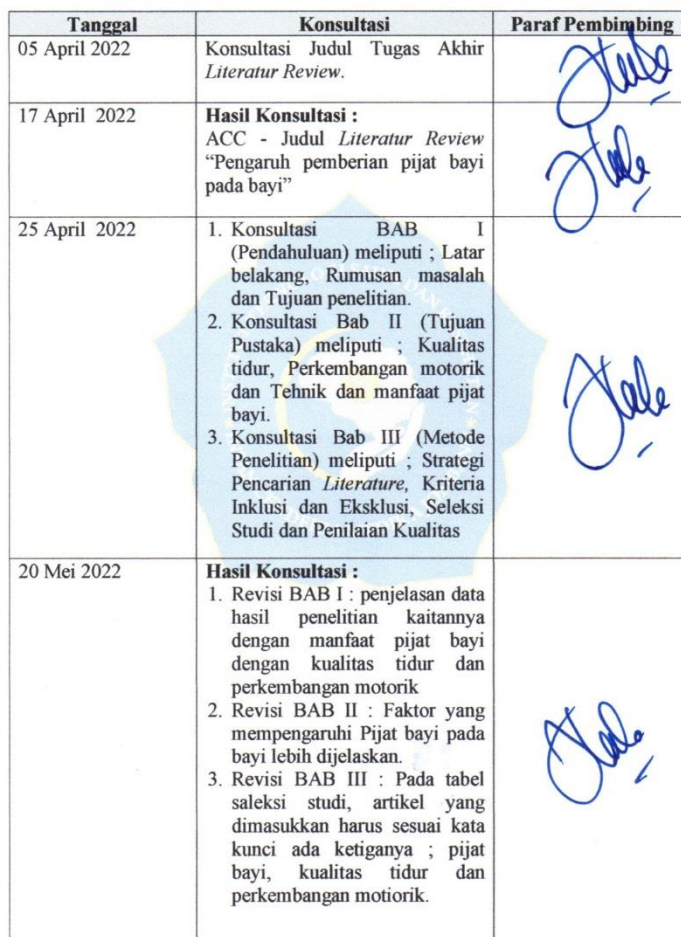 Tanggal Konsultasi Paraf Pembimbing
05 April 2022 Konsultasi Judul Tugas Akhir
Literatur Review.
17 April 2022 Hasil Konsultasi :
ACC - Judul Literatur Review
“Pengaruh pemberian pijat bayi
pada bayi”
25 April 2022 1. Konsultasi BAB I
(Pendahuluan) meliputi ; Latar
belakang, Rumusan masalah
dan Tujuan penelitian.
2. Konsultasi Bab II (Tujuan
Pustaka) meliputi ; Kualitas
tidur, Perkembangan motorik
dan Tehnik dan manfaat pijat
bayi.
3. Konsultasi Bab III (Metode
Penelitian) meliputi ; Strategi
Pencarian Literature, Kriteria
Inklusi dan Eksklusi, Seleksi
Studi dan Penilaian Kualitas
20 Mei 2022 Hasil Konsultasi :
1. Revisi BAB I : penjelasan data
hasil penelitian kaitannya
dengan manfaat pijat bayi
dengan kualitas tidur dan
perkembangan motorik
2. Revisi BAB II : Faktor yang
mempengaruhi Pijat bayi pada
bayi lebih dijelaskan.
3. Revisi BAB III : Pada tabel
saleksi studi, artikel yang
dimasukkan harus sesuai kata
kunci ada ketiganya ; pijat
bayi, kualitas tidur dan
perkembangan motiorik.